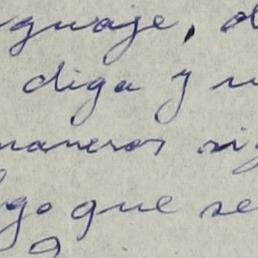 guaje, d
diga y
maneras sig
lgo que se